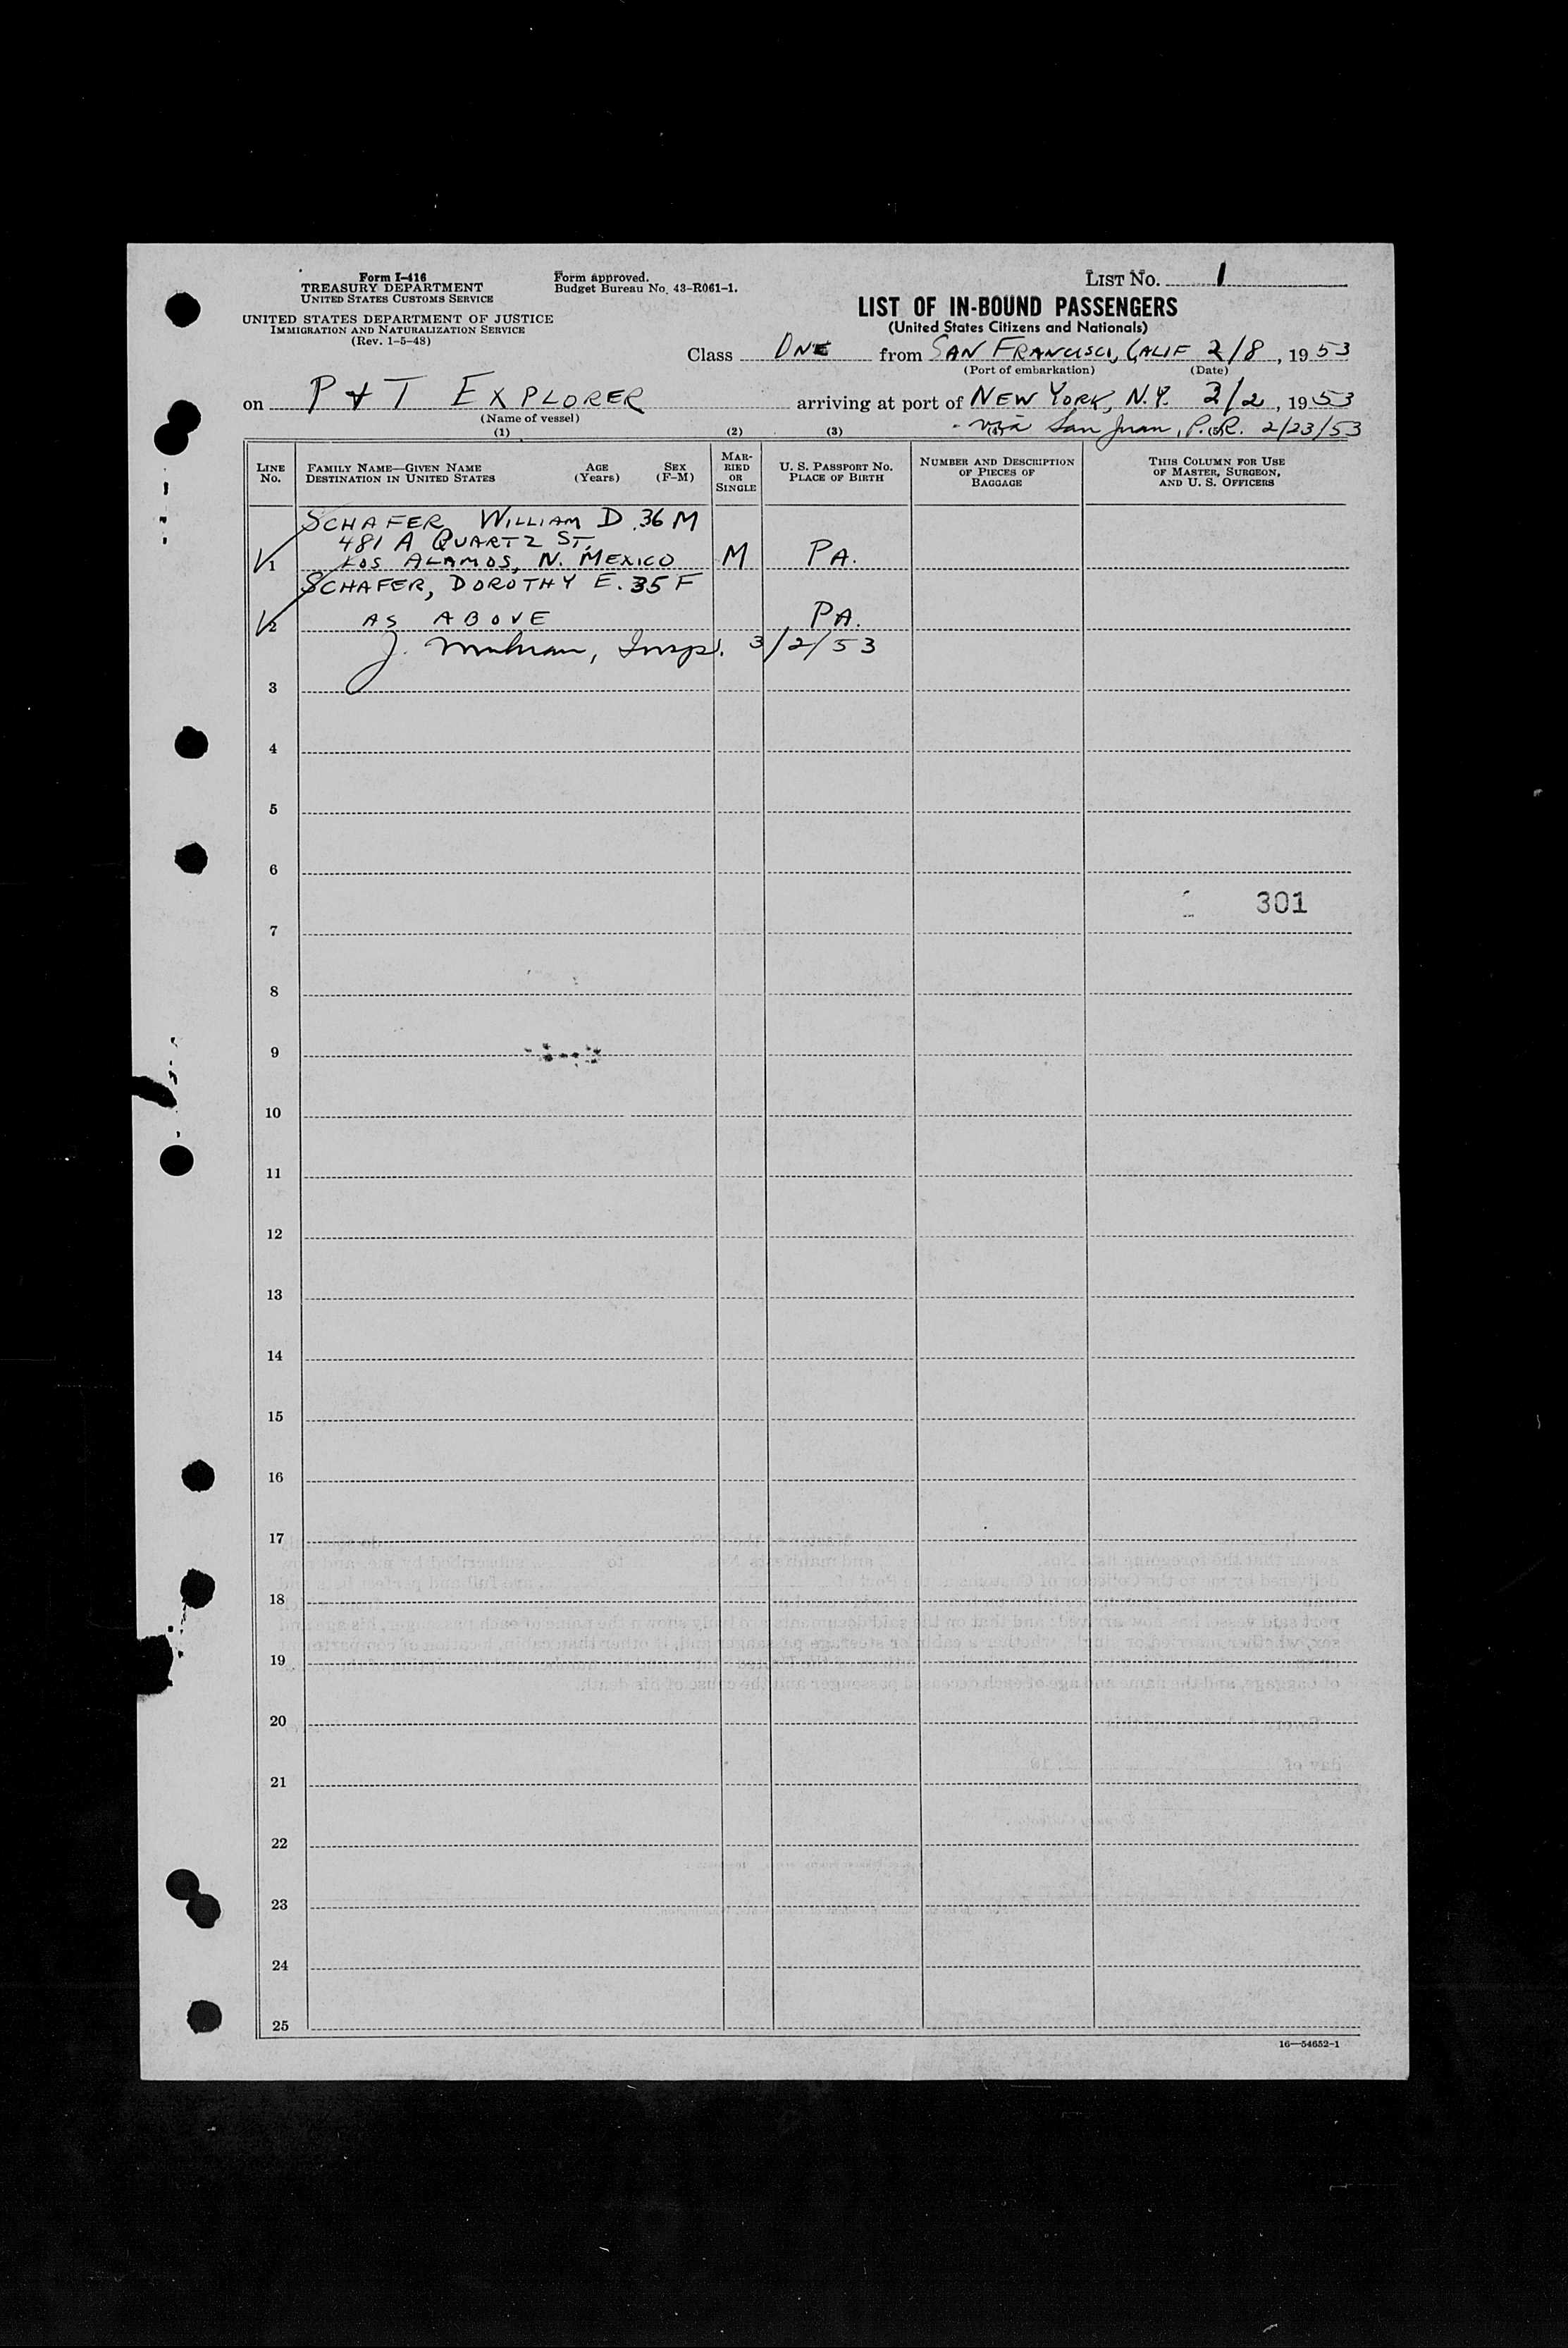 Form I-416
TREASURY DEPARTMENT
UNITED STATES CUSTOMS SERVICE
UNITED STATES DEPARTMENT OF JUSTICE
IMMIGRATION AND NATURALIZATION SERVICE
(Rev. 1-5-48)
Form approved.
Budget Bureau No. 43-R061-1.
LIST NO. 1
LIST OF IN-BOUND PASSENGERS
(United States Citizens and Nationals)
Class ONE from SAN FRANCISCO, CALIF 2/8, 1953
(Port of embarkation) (Date)
on P & T EXPLORER arriving at port of NEW YORK, N.Y. 3/2, 1953
(Name of vessel)
via San Juan, P.R. 2/23/53
(1) (2) (3) (4) (5)
LINE No.
FAMILY NAME—GIVEN NAME AGE SEX
DESTINATION IN UNITED STATES (Years) (F-M)
MARRIED OR SINGLE
U. S. PASSPORT NO.
PLACE OF BIRTH
NUMBER AND DESCRIPTION
OF PIECES OF
BAGGAGE
THIS COLUMN FOR USE
OF MASTER, SURGEON,
AND U. S. OFFICERS
SCHAFER, WILLIAM D. 36 M
481 A QUARTZ ST.
1 LOS ALAMOS, N. MEXICO M PA.
SCHAFER, DOROTHY E. 35 F
2 AS ABOVE PA.
J. Insp. 3/2/53
3
4
5
6
301
7
8
9
10
11
12
13
14
15
16
17
18
19
20
21
22
23
24
25
16—54652-1